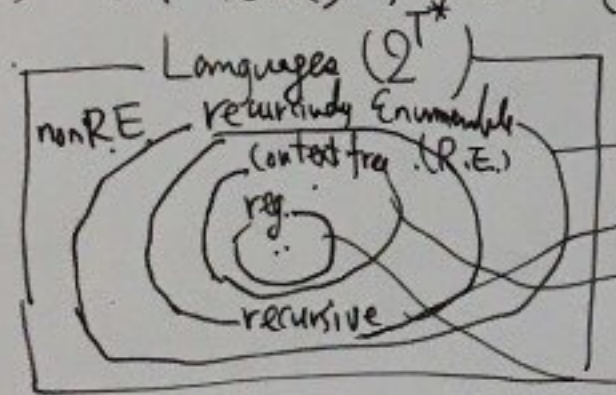 Languages (2^T*)
nonR.E. recursively Enumerable
context free (R.E.)
reg.
recursive